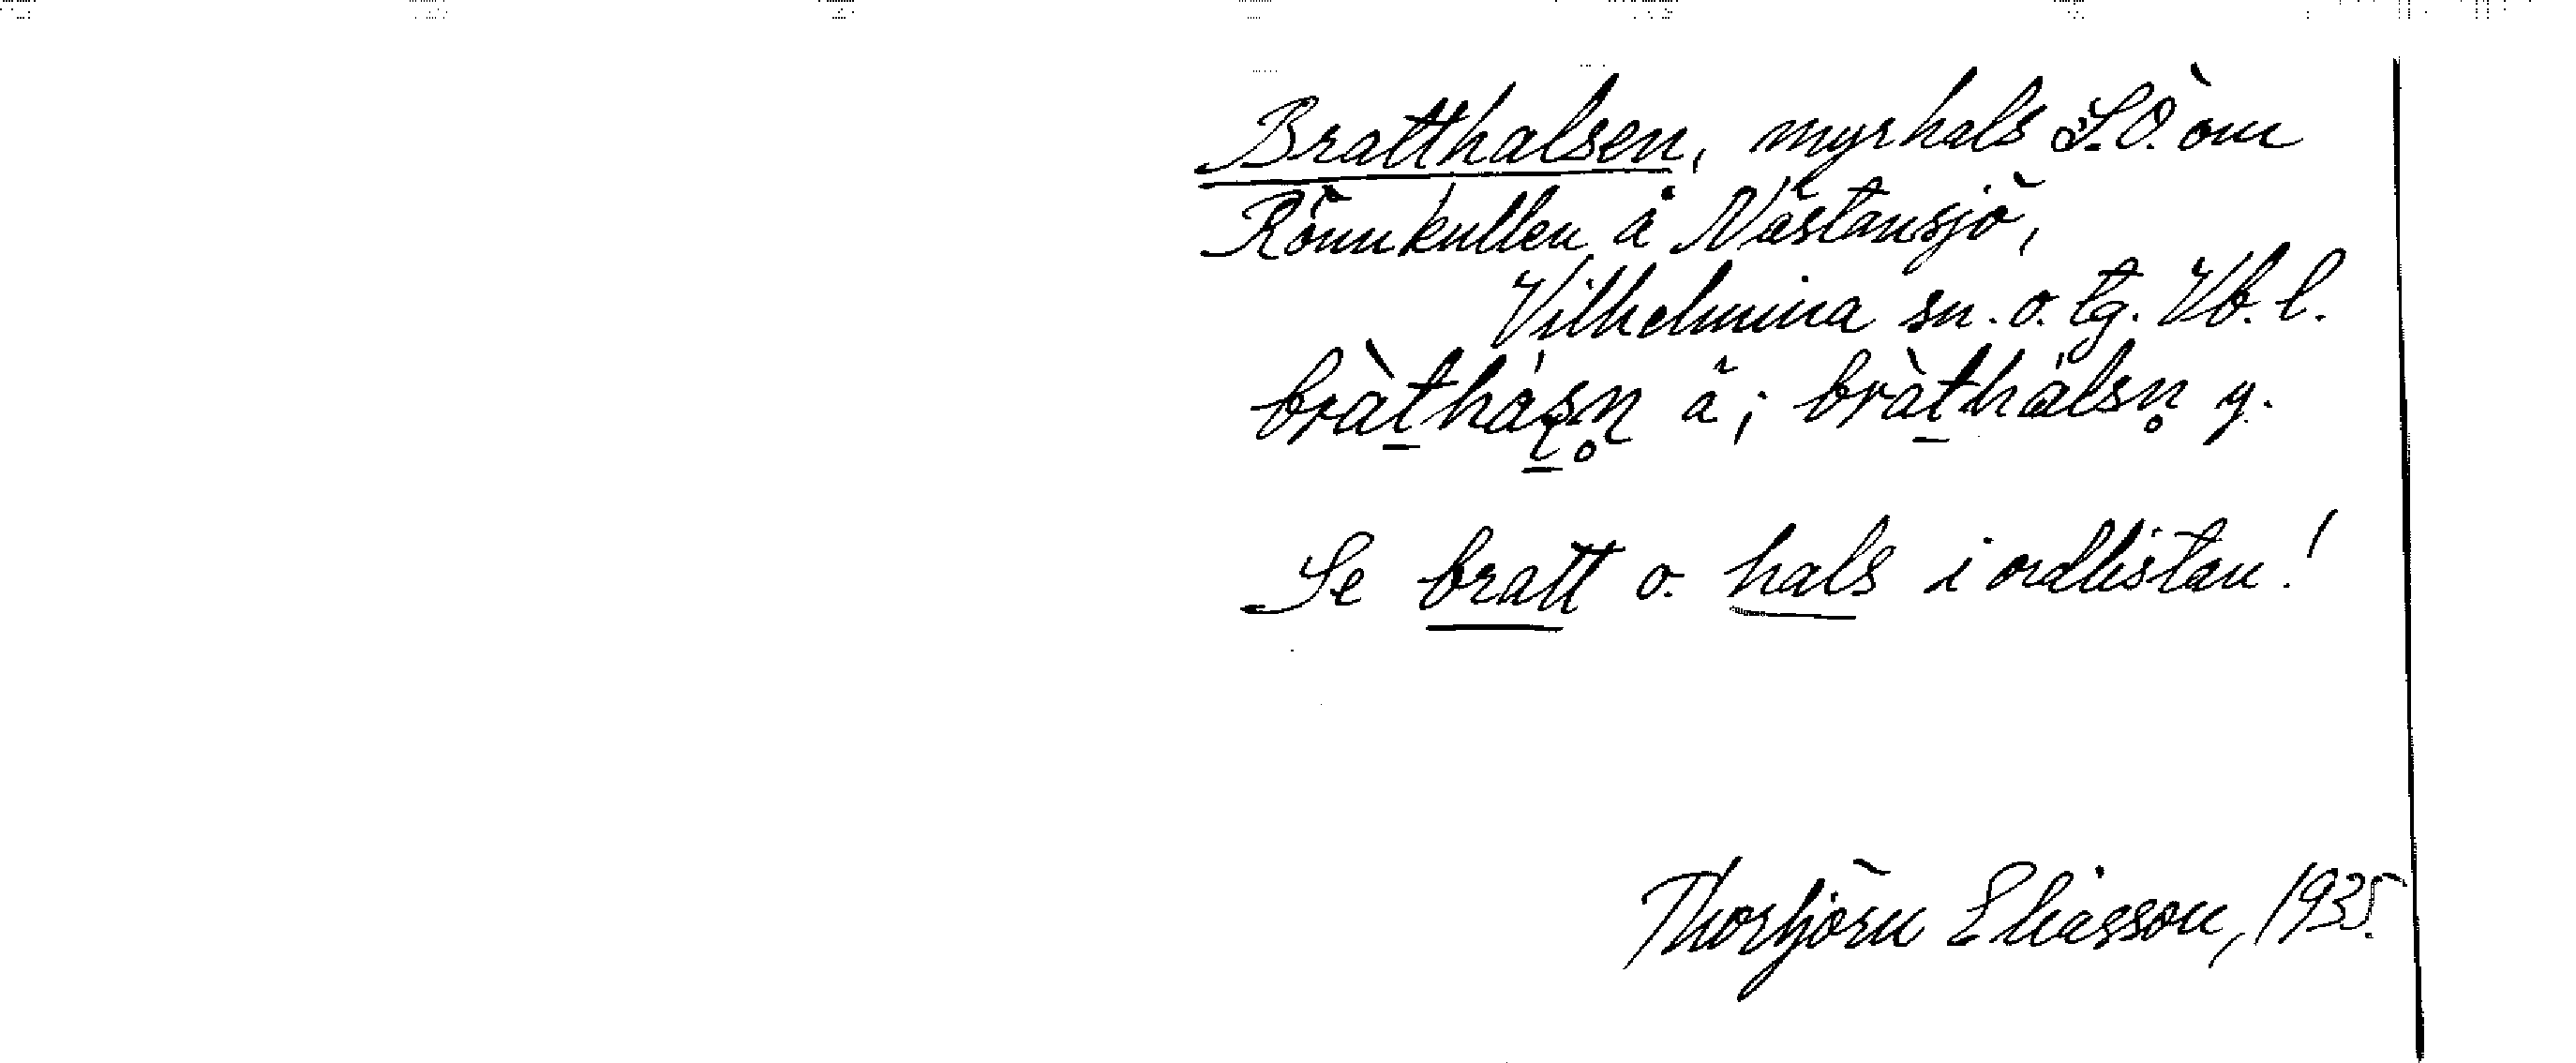 Bratthalsen, myrhals S.Ö. om
Rönnkullen å Nästansjö,
Vilhelmina sn. o. tg. Vb. l.
bràt̠hàʂn̥ ä; bràt̠hàlsn̥ y.
Se bratt o. hals i ordlistan!
Thorbjörn Eliasson, 1935.